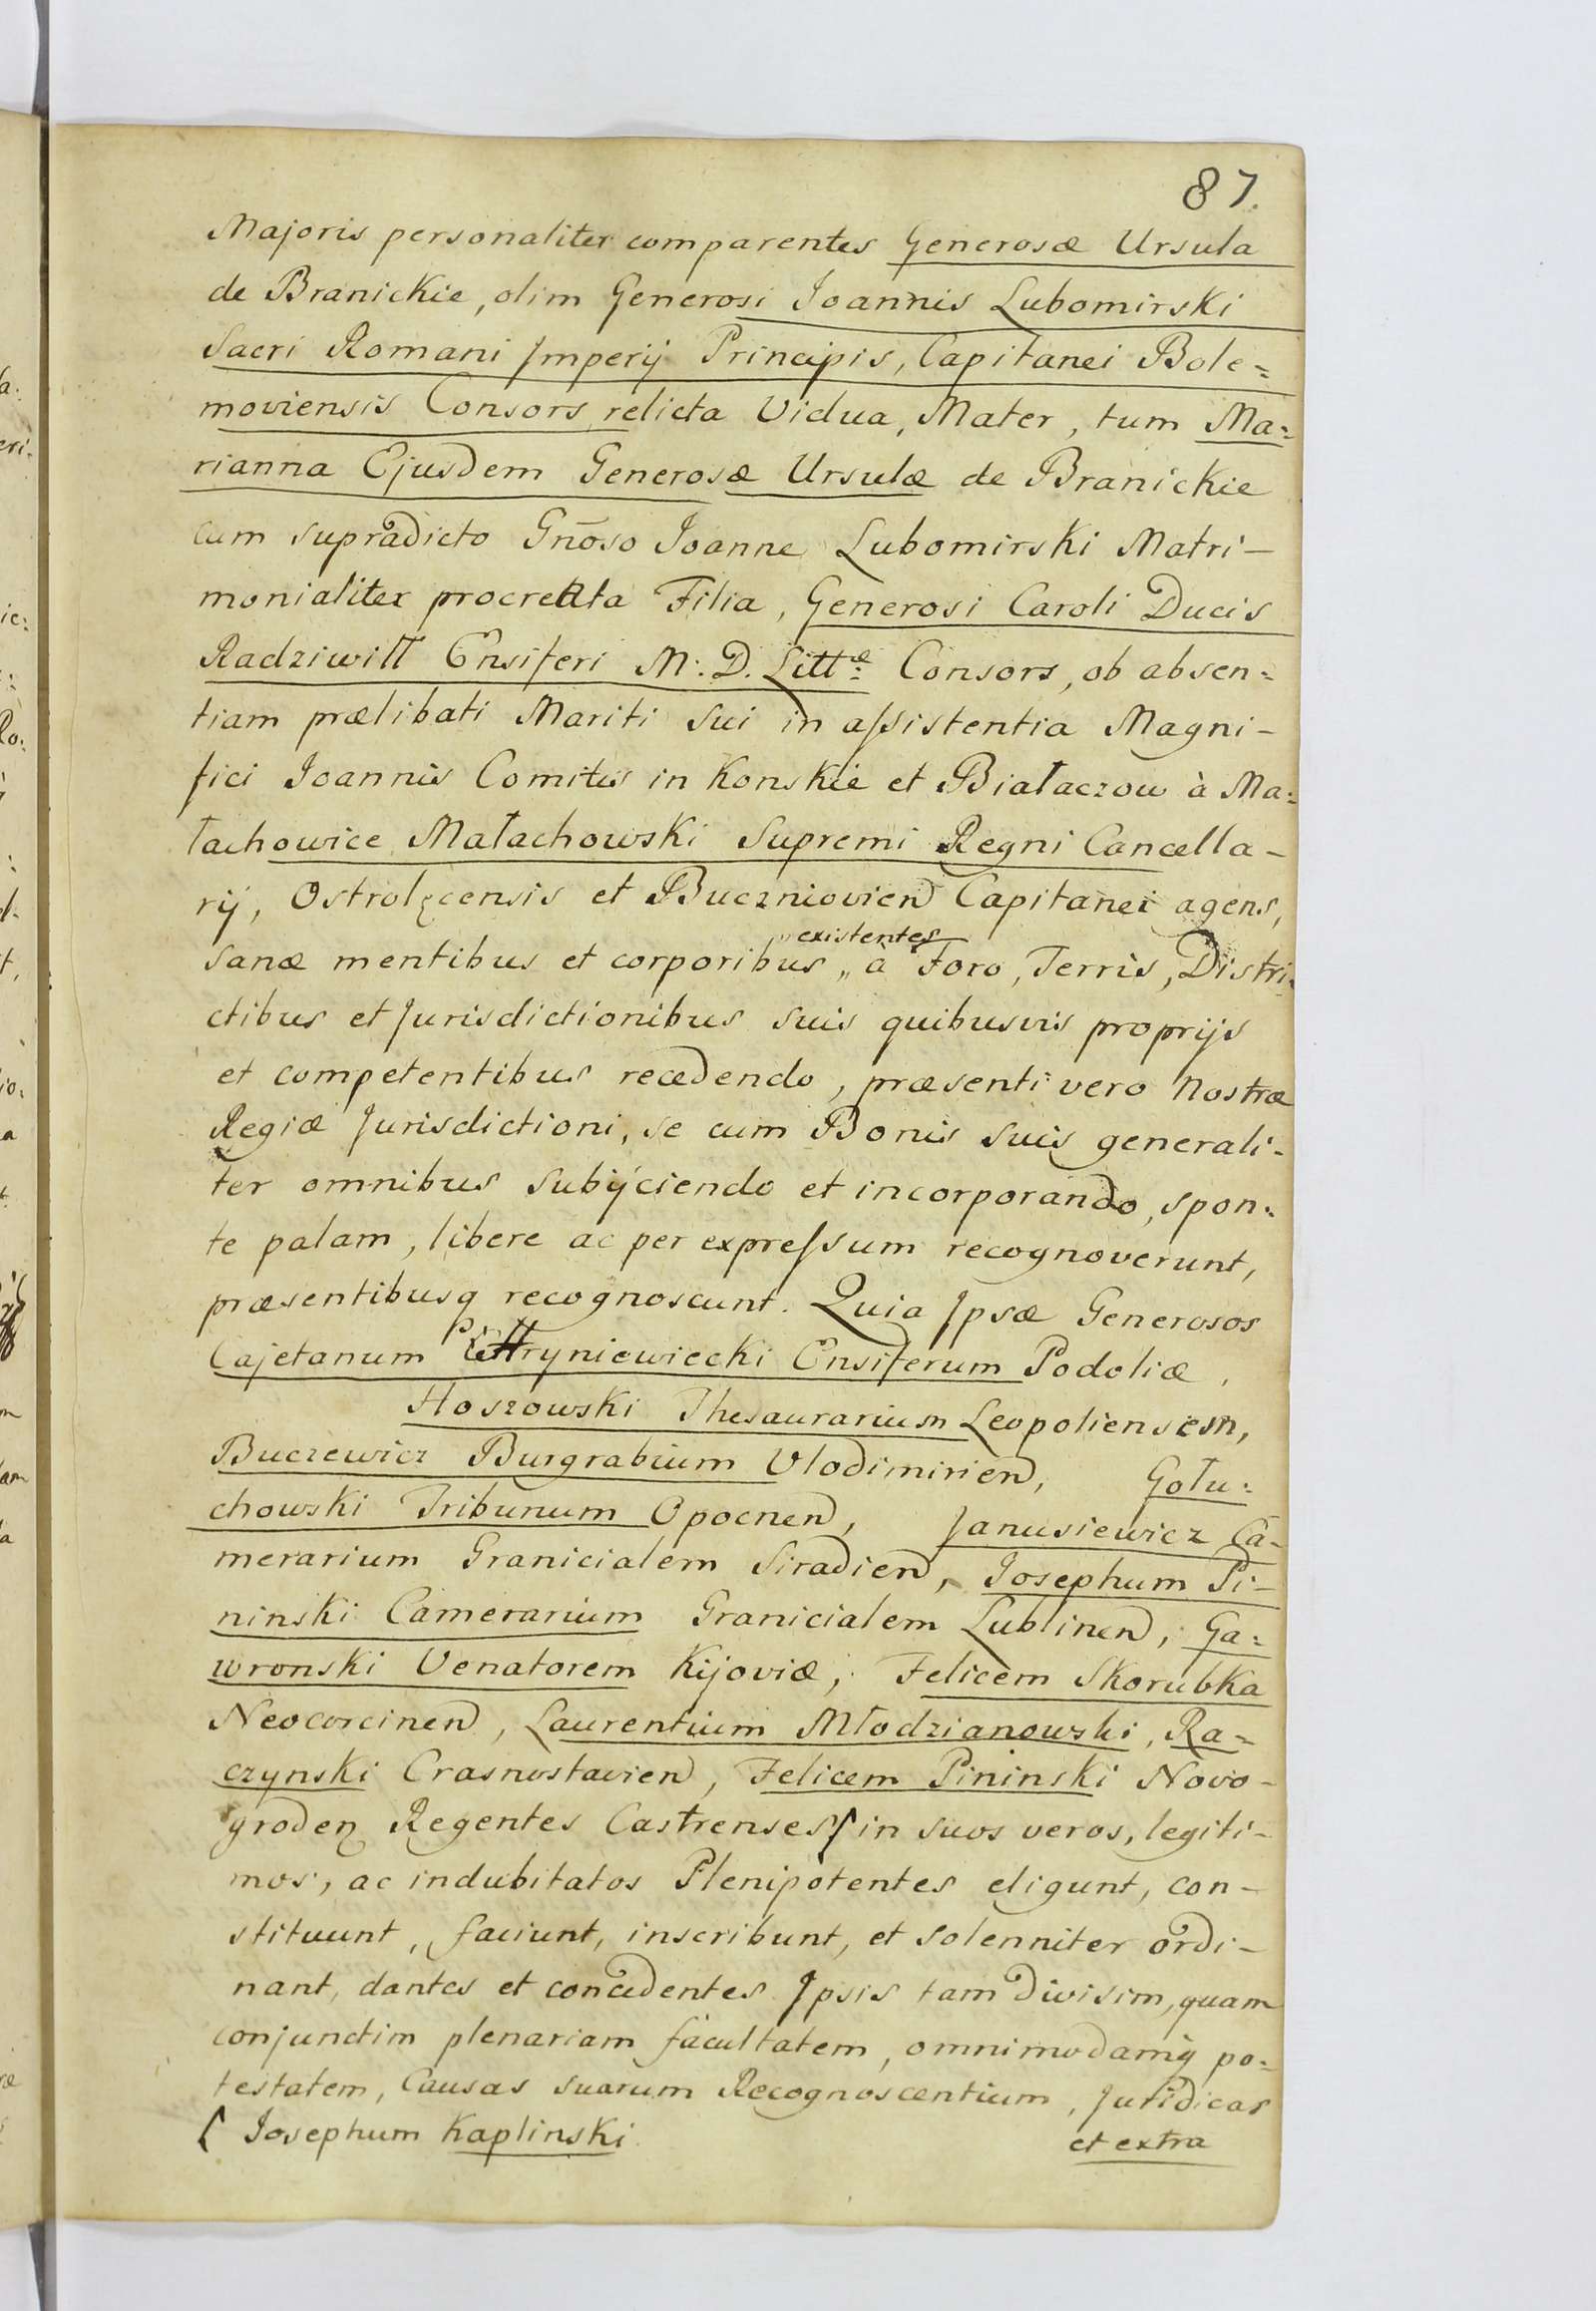 87.
Majoris personaliter comparentes Generosæ Ursula
de Branickie, olim Generosi Joannis Lubomirski
Sacri Romani Imperij Principis, Capitanei Bole=
moviensis Consors, relicta Vidua, Mater, tum Ma=
rianna Ejusdem Generosæ Ursulæ de Branickie
cum supradicto Gn̄oso Joanne Lubomirski Matri-
monialiter procreata Filia, Generosi Caroli Ducis
Radziwiłł Ensiferi M: D. Littæ: Consors, ob absen=
tiam prælibati Mariti sui in assistentia Magni-
fici Joannis Comitis in Konskie et Białaczow à Ma=
łachowice Małachowski Supremi Regni Cancella-
rij, Ostrolęcensis et Buczniovien Capitanei agens,
existentes
sanæ mentibus et corporibus „ à Foro, Terris, Distri=
ctibus et Jurisdictionibus suis quibusvis proprijs
et competentibus recedendo, præsenti vero Nostræ
Regiæ Jurisdictioni, se cum Bonis suis generali-
ter omnibus subijciendo et incorporando, spon=
te palam, libere ac per expressum recognoverunt,
præsentibusq recognoscunt. Quia Ipsæ Generosos
Cajetanum ryniewiecki Ensiferum Podoliæ,
Hoszowski Thesaurarium Leopoliensem,
Buczewicz Burgrabium Vlodimirien, Gołu=
chowski Tribunum Opocnen, Janusiewicz Ca-
merarium Granicialem Siradien, Josephum Pi-
ninski Camerarium Granicialem Lublinen, Ga=
wronski Venatorem Kijoviæ, Felicem Skorubka
Neocorcinen, Laurentium Młodzianowski, Ra=
czynski Crasnostavien, Felicem Pininski Novo-
groden Regentes Castrenses [ in suos veros, legiti-
mos, ac indubitatos Plenipotentes eligunt, con-
stituunt, faciunt, inscribunt, et solenniter ordi-
nant, dantes et concedentes Ipsis tam divisim, quam
conjunctim plenariam facultatem, omnimodamq po=
testatem, Causas suarum Recognoscentium, Juridicas
[ Josephum Kaplinski
et extra